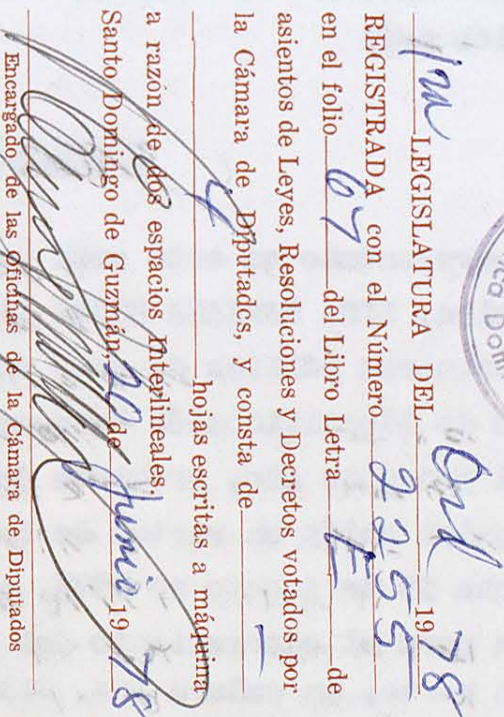 1ra LEGISLATURA DEL Ord 1978
REGISTRADA con el Número 2255
en el folio 67 del Libro Letra E de
asientos de Leyes, Resoluciones y Decretos votados por
la Cámara de Diputados, y consta de
hojas escritas a máquina
a razón de dos espacios interlineales.
Santo Domingo de Guzmán, 20 de Junio 1978
Encargado de las Oficinas de la Cámara de Diputados